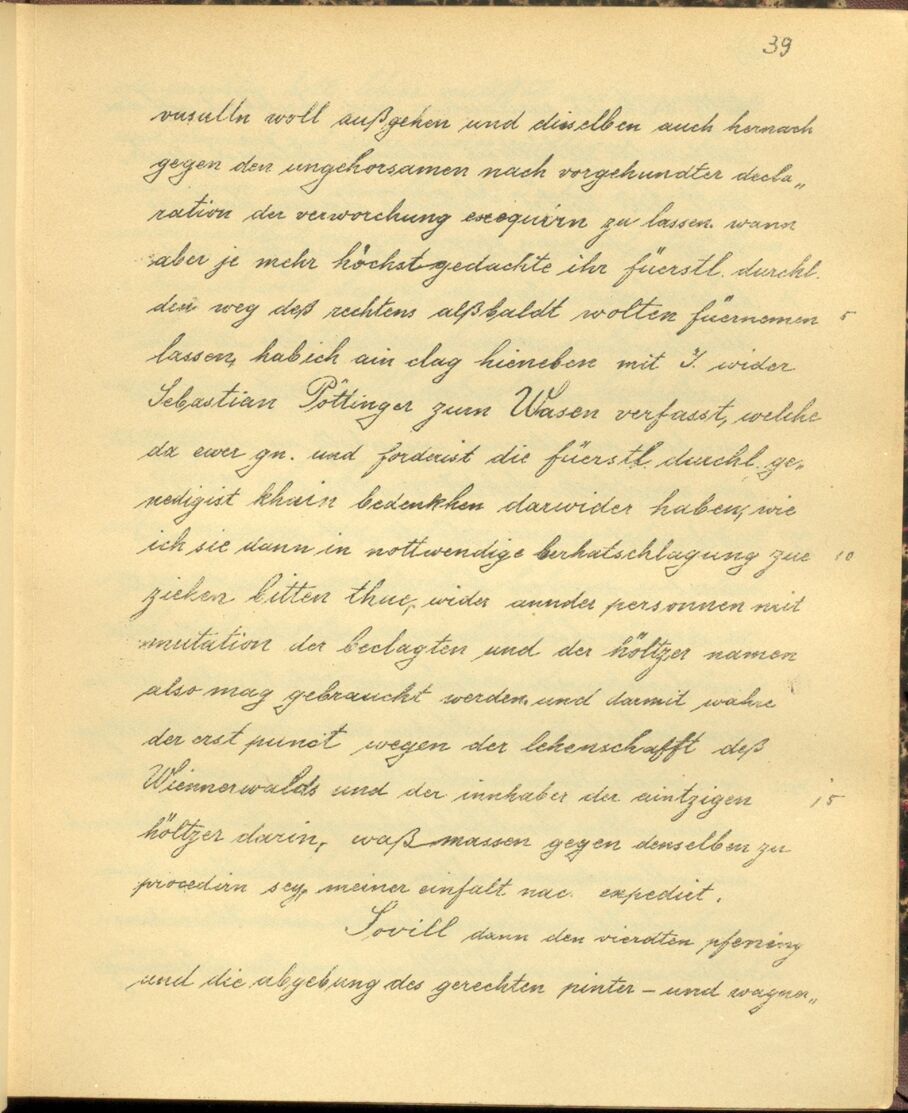 39
vasalln woll außgehen und dieselben auch hernach
gegen den ungehorsamen nach vorgehundter decla„
ration der verworchung exequirn zu lassen. wann
aber je mehr höchstgedachte ihr füerstl. durchl.
den weg deß rechtens alßbaldt wolten füernemen 5
lassen, hab ich ain clag hieneben mit I. wider
Sebastian Pöttinger zum Wasen verfasst, welche
da ewer gn. und forderist die füerstl. durchl. ge„
nedigist khain bedenkhen darwider haben, wie
ich sie dann in nottwendige berhatschlagung zue 10
ziehen bitten thue, wider annder personnen mit
mutation der beclagten und der höltzer namen
also mag gebraucht werden. und darmit wahre
der erst punct wegen der lehenschafft deß
Wiennerwalds und der innhaber der aintzigen 15
höltzer darin, waß massen gegen denselben zu
procedirn sey, meiner einfalt nac. expediet.
Sovill dann den vierdten pfening
und die abgebung des gerechten pinter - und wagner„